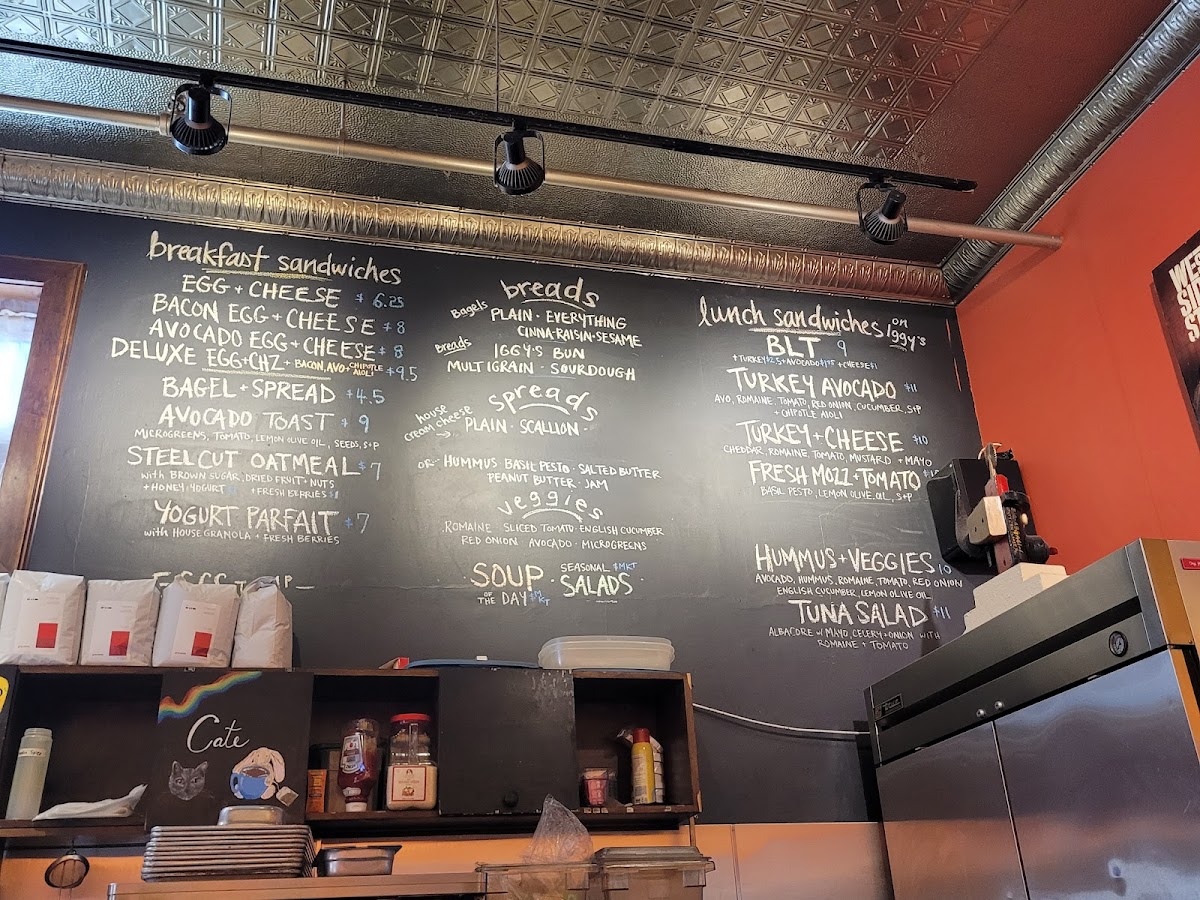 breakfast sandwiches
EGG + CHEESE $6.25
BACON EGG + CHEESE $8
AVOCADO EGG + CHEESE $8
DELUXE EGG+CHZ + BACON, AVO + CHIPOTLE AIOLI $9.5
BAGEL + SPREAD $4.5
AVOCADO TOAST $9
MICROGREENS, TOMATO, LEMON OLIVE OIL, SEEDS, S+P
STEEL CUT OATMEAL $7
with BROWN SUGAR, DRIED FRUIT + NUTS
+ HONEY YOGURT $1 + FRESH BERRIES $1
YOGURT PARFAIT $7
with HOUSE GRANOLA + FRESH BERRIES
breads
Bagels PLAIN · EVERYTHING
CINNA-RAISIN · SESAME
Breads IGGY'S BUN
MULTIGRAIN · SOURDOUGH
spreads
house cream cheese → PLAIN · SCALLION ·
OR - HUMMUS BASIL PESTO · SALTED BUTTER
PEANUT BUTTER · JAM
veggies
ROMAINE SLICED TOMATO · ENGLISH CUCUMBER
RED ONION AVOCADO · MICROGREENS
SOUP OF THE DAY $MKT
SEASONAL $MKT
SALADS
lunch sandwiches on Iggy's
BLT 9
+ TURKEY $2.5 + AVOCADO + CHEESE $1
TURKEY AVOCADO $11
AVO, ROMAINE, TOMATO, RED ONION, CUCUMBER, S+P
+ CHIPOTLE AIOLI
TURKEY + CHEESE $10
CHEDDAR, ROMAINE, TOMATO, MUSTARD + MAYO
FRESH MOZZ + TOMATO
BASIL PESTO, LEMON OLIVE OIL, S+P
HUMMUS + VEGGIES 10
AVOCADO, HUMMUS, ROMAINE, TOMATO, RED ONION
ENGLISH CUCUMBER, LEMON OLIVE OIL
TUNA SALAD $11
ALBACORE w/ MAYO, CELERY + ONION WITH
ROMAINE + TOMATO
Cate